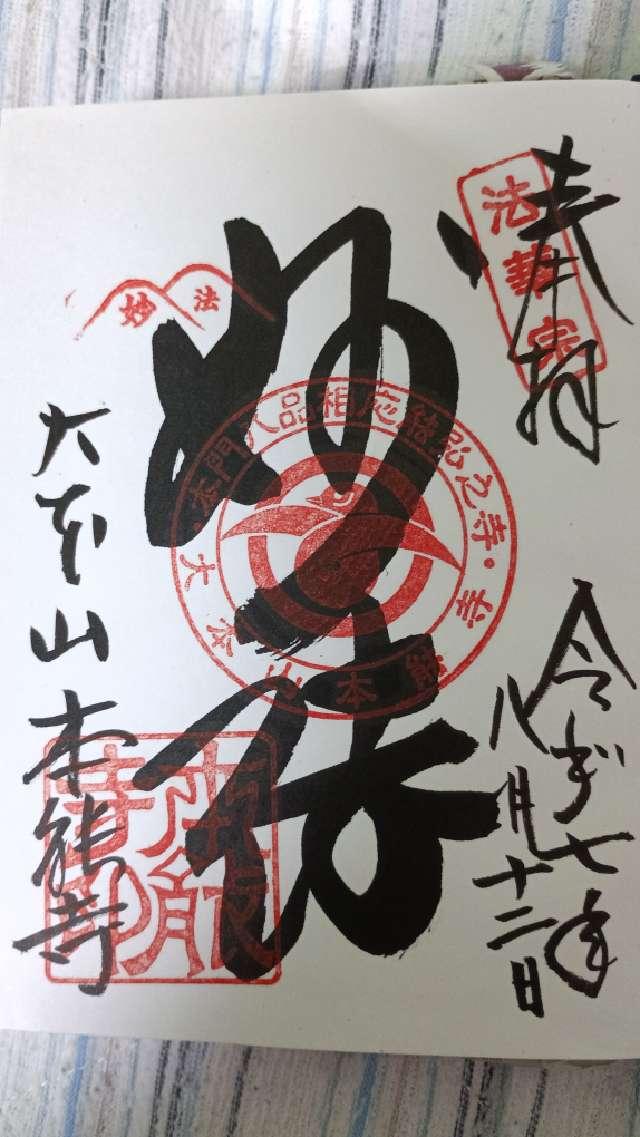 奉拝
法華宗
令和七年
八月十二日
妙法
妙 法
本門八品相応結成之寺・大本山本能寺
大本山本能寺
本能寺印